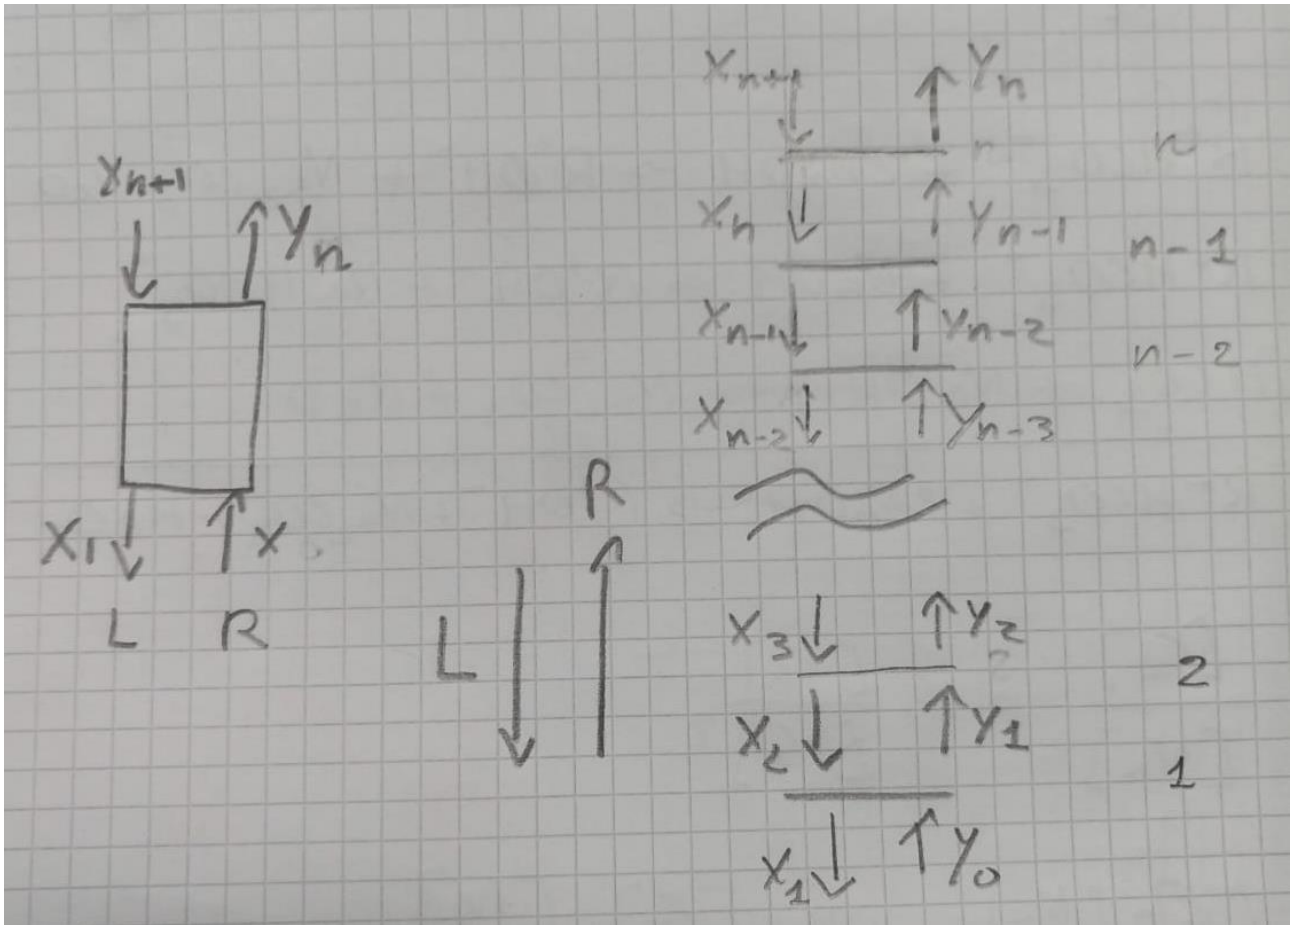 X_{n+1}
Y_n
X_1
X
L R
L
R
X_{n+1} Y_n
n
X_n Y_{n-1}
n-1
X_{n-1} Y_{n-2}
n-2
X_{n-2} Y_{n-3}
X_3 Y_2
2
X_2 Y_1
1
X_1 Y_0